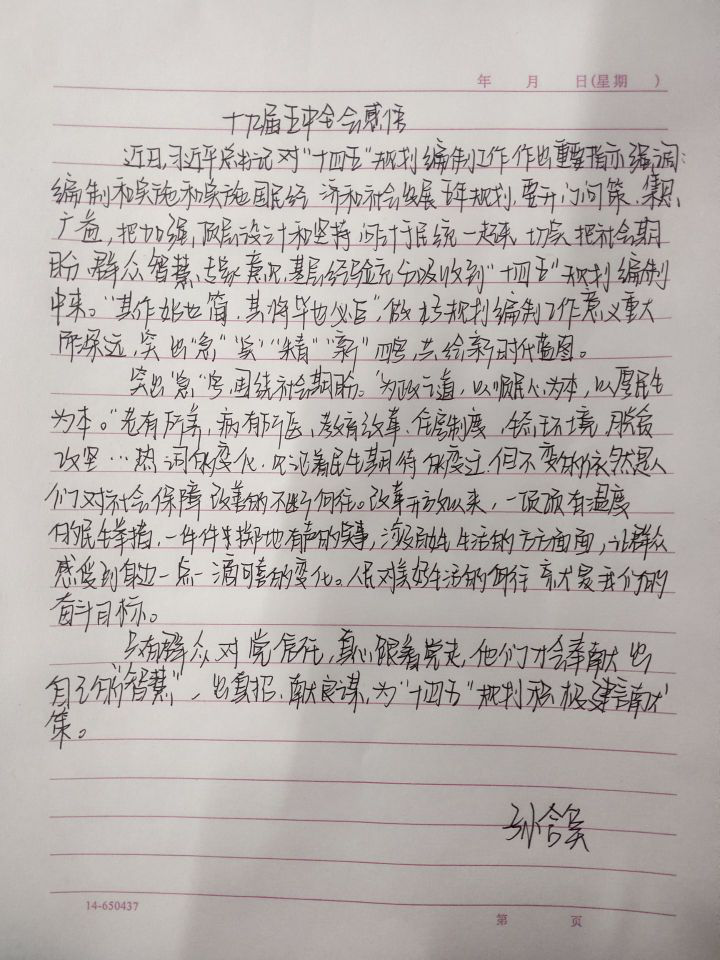 年 月 日(星期 )
十九届五中全会感悟
近日,习近平总书记对“十四五”规划编制工作作出重要指示强调:
编制和实施和实施国民经济和社会发展五年规划,要开门问策、集思
广益,把加强顶层设计和坚持问计于民统一起来,切实把社会期
盼、群众智慧、专家意见、基层经验充分吸收到“十四五”规划编制
中来。“其作始也简,其将毕也必巨”,做好规划编制工作意义重大
而深远,突出“急”“实”“精”“新”四字,共绘新时代蓝图。
突出“急”字,围绕社会期盼。“为政之道,以顺民心为本,以厚民生
为本。”老有所养,病有所医,教育改革、住房制度,生态环境,脱贫
攻坚…热词的变化,记录着民生期待的变迁,但不变的依然是人
们对社会保障改善的不断向往。改革开放以来,一项项有温度
的民生举措,一件件掷地有声的实事,涉及民生生活的方方面面,让群众
感受到身边一点一滴可喜的变化。人民对美好生活的向往,就是我们的
奋斗目标。
只有群众对党信任,真心跟着党走,他们才会奉献出
自己的“智慧”,出实招、献良谋,为“十四五”规划积极建言献
策。
14-650437
第 页